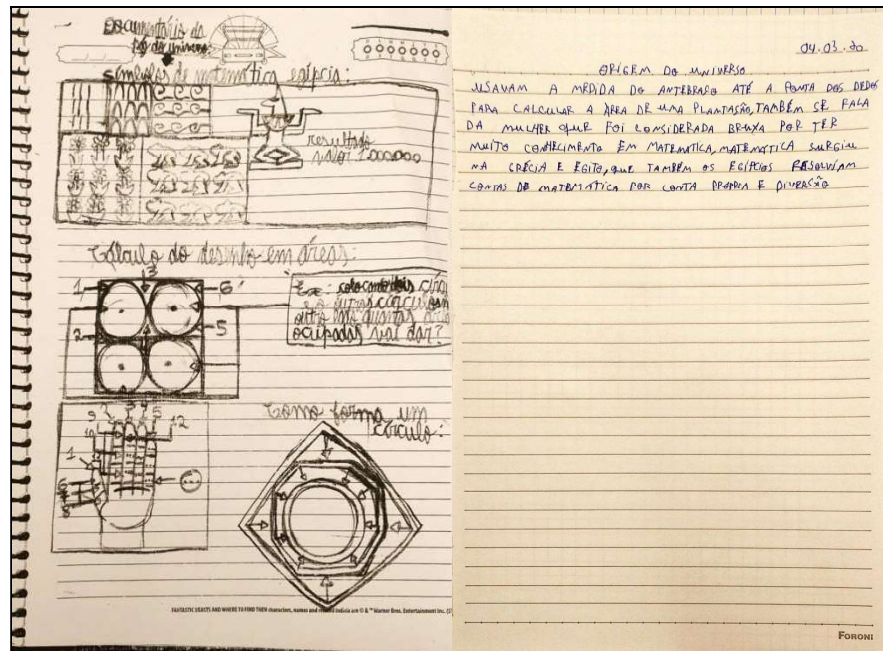 Documentário da
símbolos de matemática egípcia:
resultado
valor 1.000.000
Cálculo do desenho em áreas:
1
3
6
2
5
Ex: colocamos dois círcu
e o outros círculos em
outro lado quantas áreas
ocupadas vai dar?
Como forma um
círculo:
9 2 3 4 5
12
1
6
8
FANTASTIC BEASTS AND WHERE TO FIND THEM characters, names and related indicia are © & ™ Warner Bros. Entertainment Inc.
04.03.20
ORIGEM DO UNIVERSO
USAVAM A MEDIDA DO ANTEBRAÇO ATÉ A PONTA DOS DEDOS
PARA CALCULAR A ÁREA DE UMA PLANTASÃO, TAMBÉM SE FALA
DA MULHER QUE FOI CONSIDERADA BRUXA POR TER
MUITO CONHECIMENTO EM MATEMATICA, MATEMATICA SURGIU
NA GRÉCIA E EGITO, QUE TAMBÉM OS EGÍPCIOS RESOLVIAM
CONTAS DE MATEMATICA POR CONTA PROPRIA E DIVERSÃO
FORONI